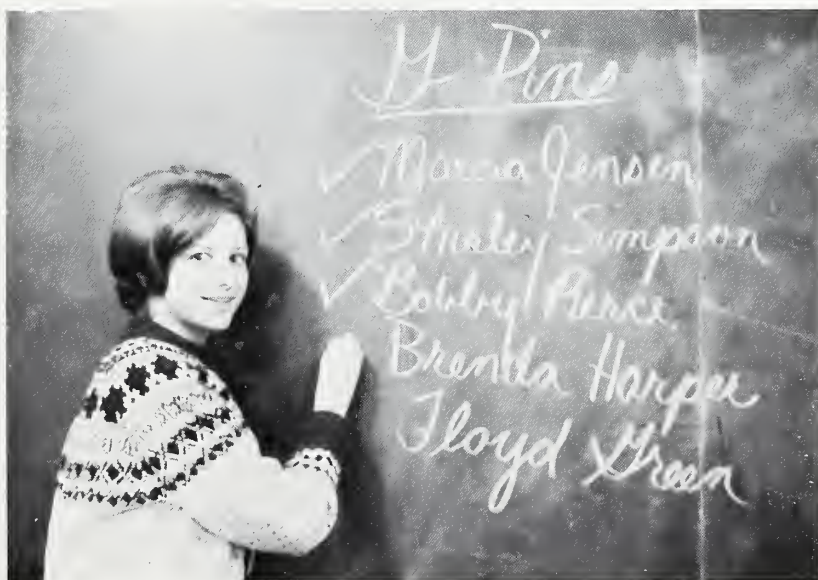 Y Pins
✓ Marcia Jensen
✓ Shirley Simpson
✓ Bobby Pierce
Brenda Harper
Floyd Green